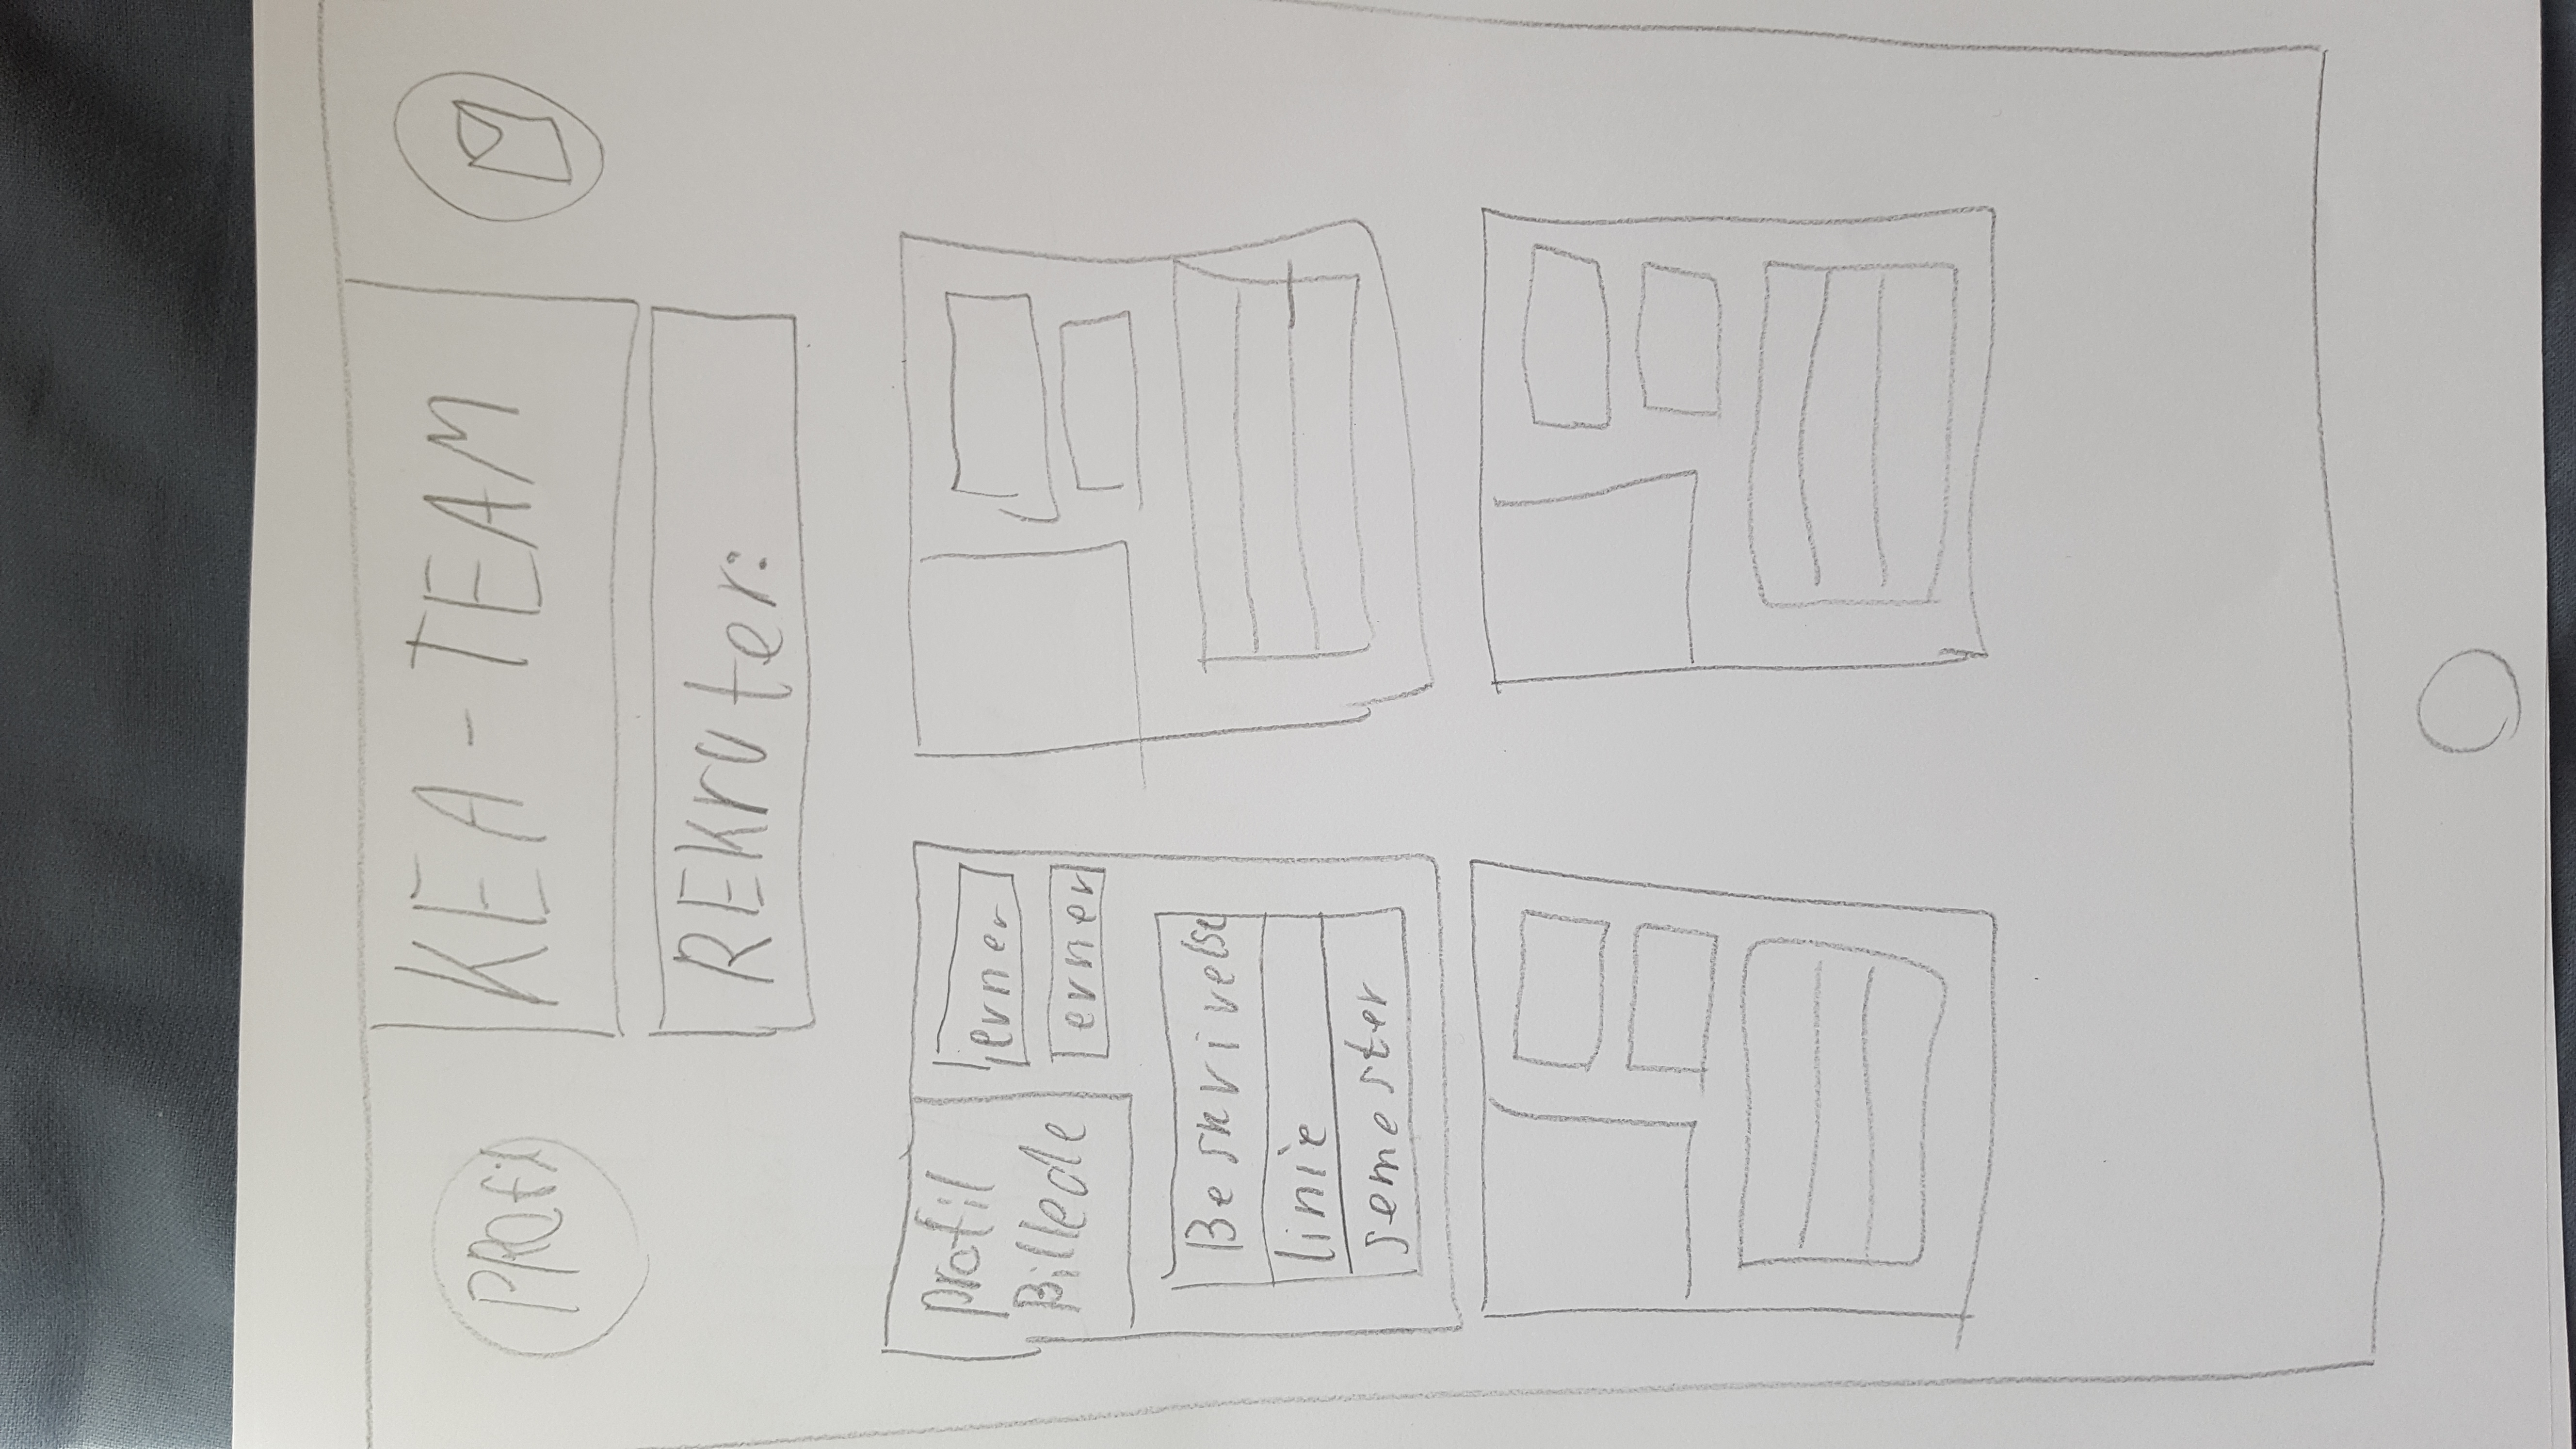 PROfil
KEA-TEAM
REKruter:
Profil
Billede
evner
evner
Beskrivelse
linie
semester